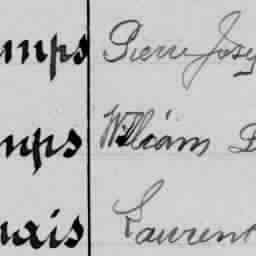 mps Pierre Jose
mps William
nais Laurent